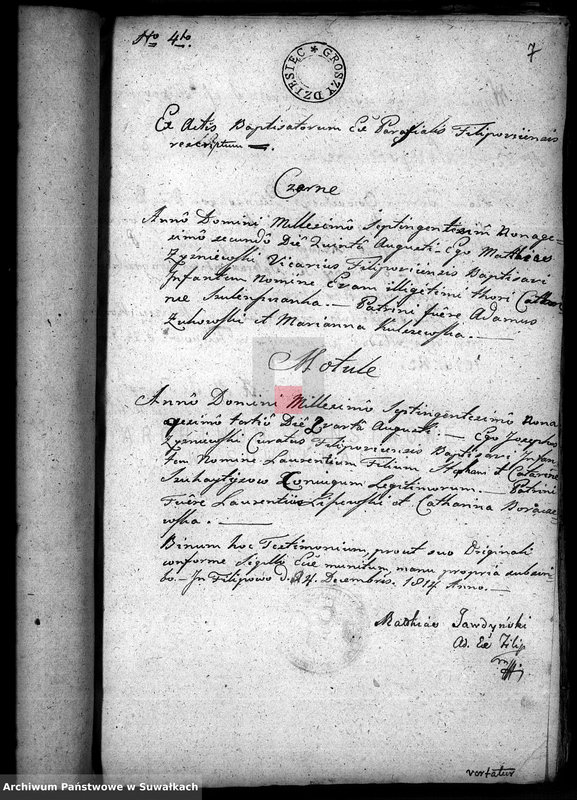 No 4to.
7
GROSZY DZIESIĘC *
Ex Actis Baptisatorum Eccł Parafialis Filipoviensis
rescriptum —.
Czarne
Annô Domini Millesimô Septingentesimô Nonage-
simô secundô Diê Quintâ Augusti Ego Mathias
Zyżniewski Vicarius Filipoviensis Baptisavi
Infantem Nomine Evam illegitimi thori Catha-
Patrini fuêre Adamus
Żukowski et Marianna —
Motule
Annô Domini Millesimô Septingentesimô Nona
gesimô tertiô Diê Quarti Augusti. — Ego Josephus
Zyżniewski Curatus Filipoviensis Baptisavi Infan-
tem Nomine Laurentium Filium Stephani et Catarine
Conjugum Legitimorum. — Patrini
Fuêre Laurentius Lipewski et Catharina
wska. —
Binum hoc Testimonium, prout suo Originali
conforme Sigillô Eccłê munitum, manu propria subscri-
bo. — In Filipowo d. 24. Decembris. 1814 Anno. —
Mathias Jawdyński
Ad. Filip
vertatur
Archiwum Państwowe w Suwałkach